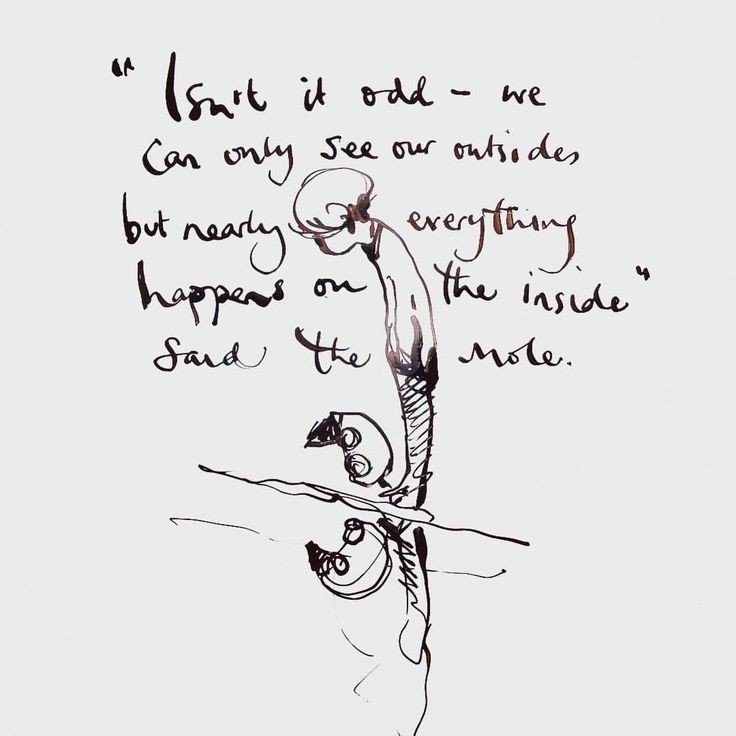 "Isn't it odd – we
can only see our outsides
but nearly everything
happens on the inside"
said the mole.